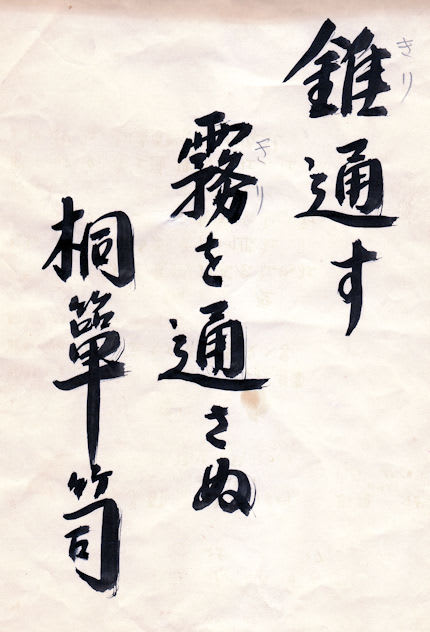 錐通す
きり
霧を通さぬ
きり
桐箪笥